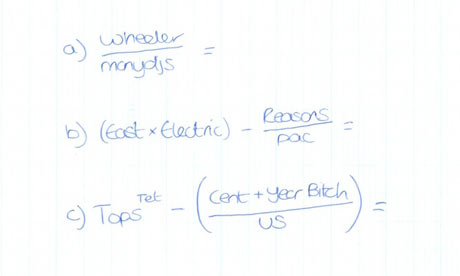 a) Wheeler / manydjs =
b) (East × Electric) − Reasons / pac =
c) Tops^Tet − (Cent + Year Bitch / US) =